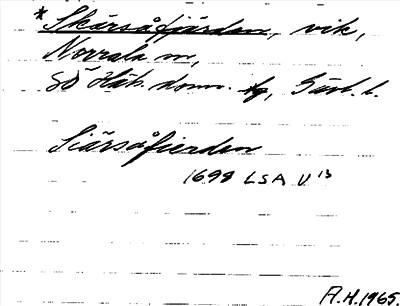 *Skärsåfjärden, vik,
Norrala sn,
SÖ Häls. dom. sg, Gävl. l.
Siärsåfierden
1698 LSA U 13
A.H. 1965.